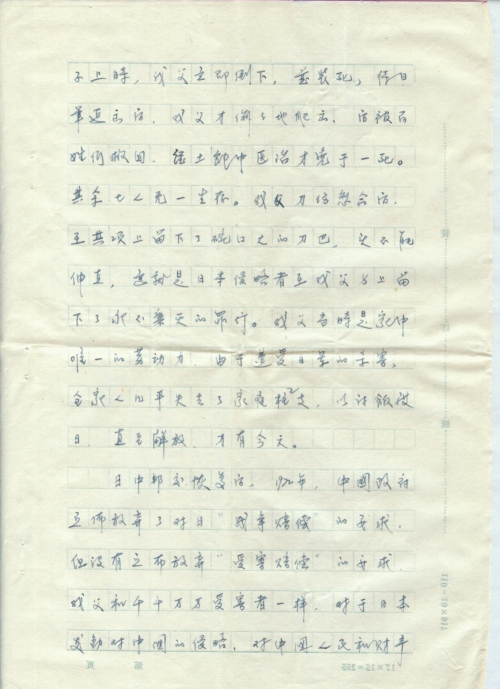 子上時，我父立即倒下，并装死，待日
軍退去后，我父才偷偷地爬出，后被百
姓們救回，经土郎中医治才免于一死。
其余七人无一生存。我父刀伤愈合后，
在其項上留下了碗口大的刀巴，头不能
伸直，这就是日本侵略者在我父身上留
下了永不磨灭的罪行。我父当時是家中
唯一的劳动力，由于遭受日軍的杀害，
全家人几乎失去了家庭柱支，以讨飯度
日，直至解放，才有今天。
日中邦交恢复后，年，中國政府
宣佈放弃了对日“战争赔償”的要求，
但没有宣布放弃“受害赔偿”的要求，
我父和千千万万受害者一样，对于日本
发動对中國的侵略，对中國人民和财产
17×15=255